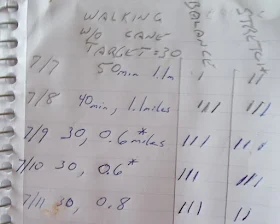 WALKING
W/O CANE
TARGET=30
BALANCE
STRETCH
7/7 50min 1.1m | ||
7/8 40min, 1.1miles ||| |||
7/9 30, 0.6* miles ||| ||
7/10 30, 0.6* ||| |||
7/11 30, 0.8 ||| ||